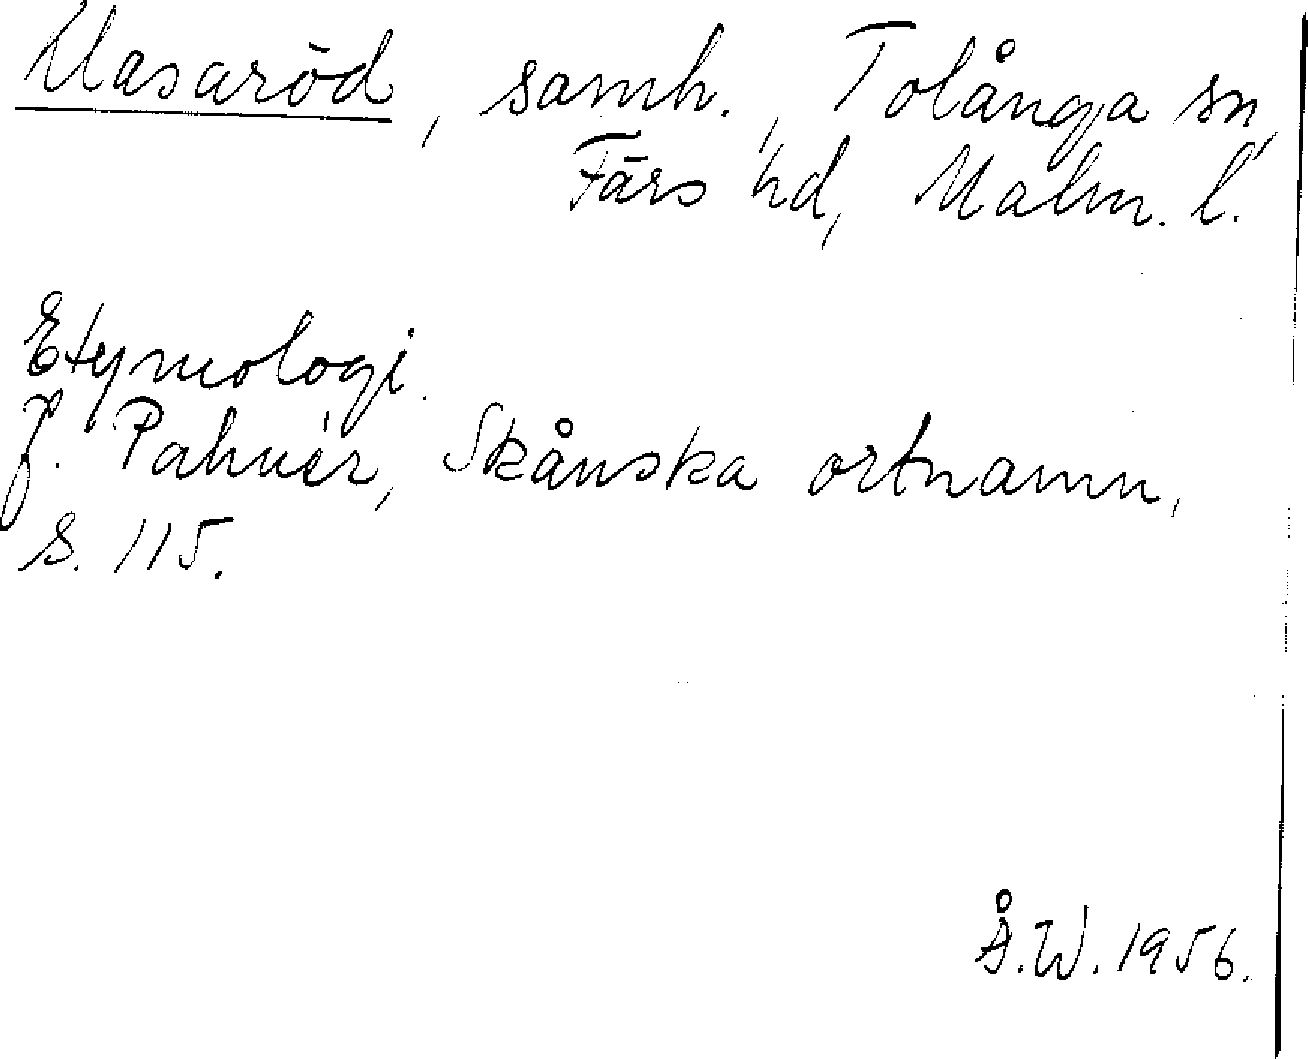 Klasaröd, samh., Tolånga sn,
Färs hd, Malm. l.
Etymologi.
J. Pahnér, Skånska ortnamn,
s. 115.
Å.W. 1956.